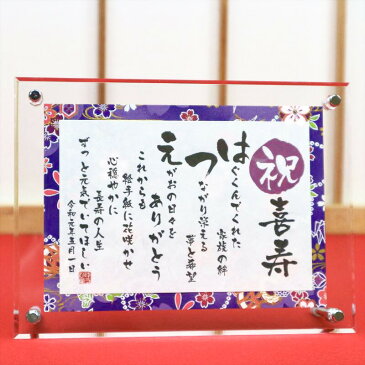 祝
喜寿
はぐくんでくれた
家族の絆
つながり添える
夢と希望
えがおの日々を
ありがとう
これからも
絵手紙に花咲かせ
心穏やかに
喜寿の人生
ずっと元気でいてほしい
令和元年五月一日